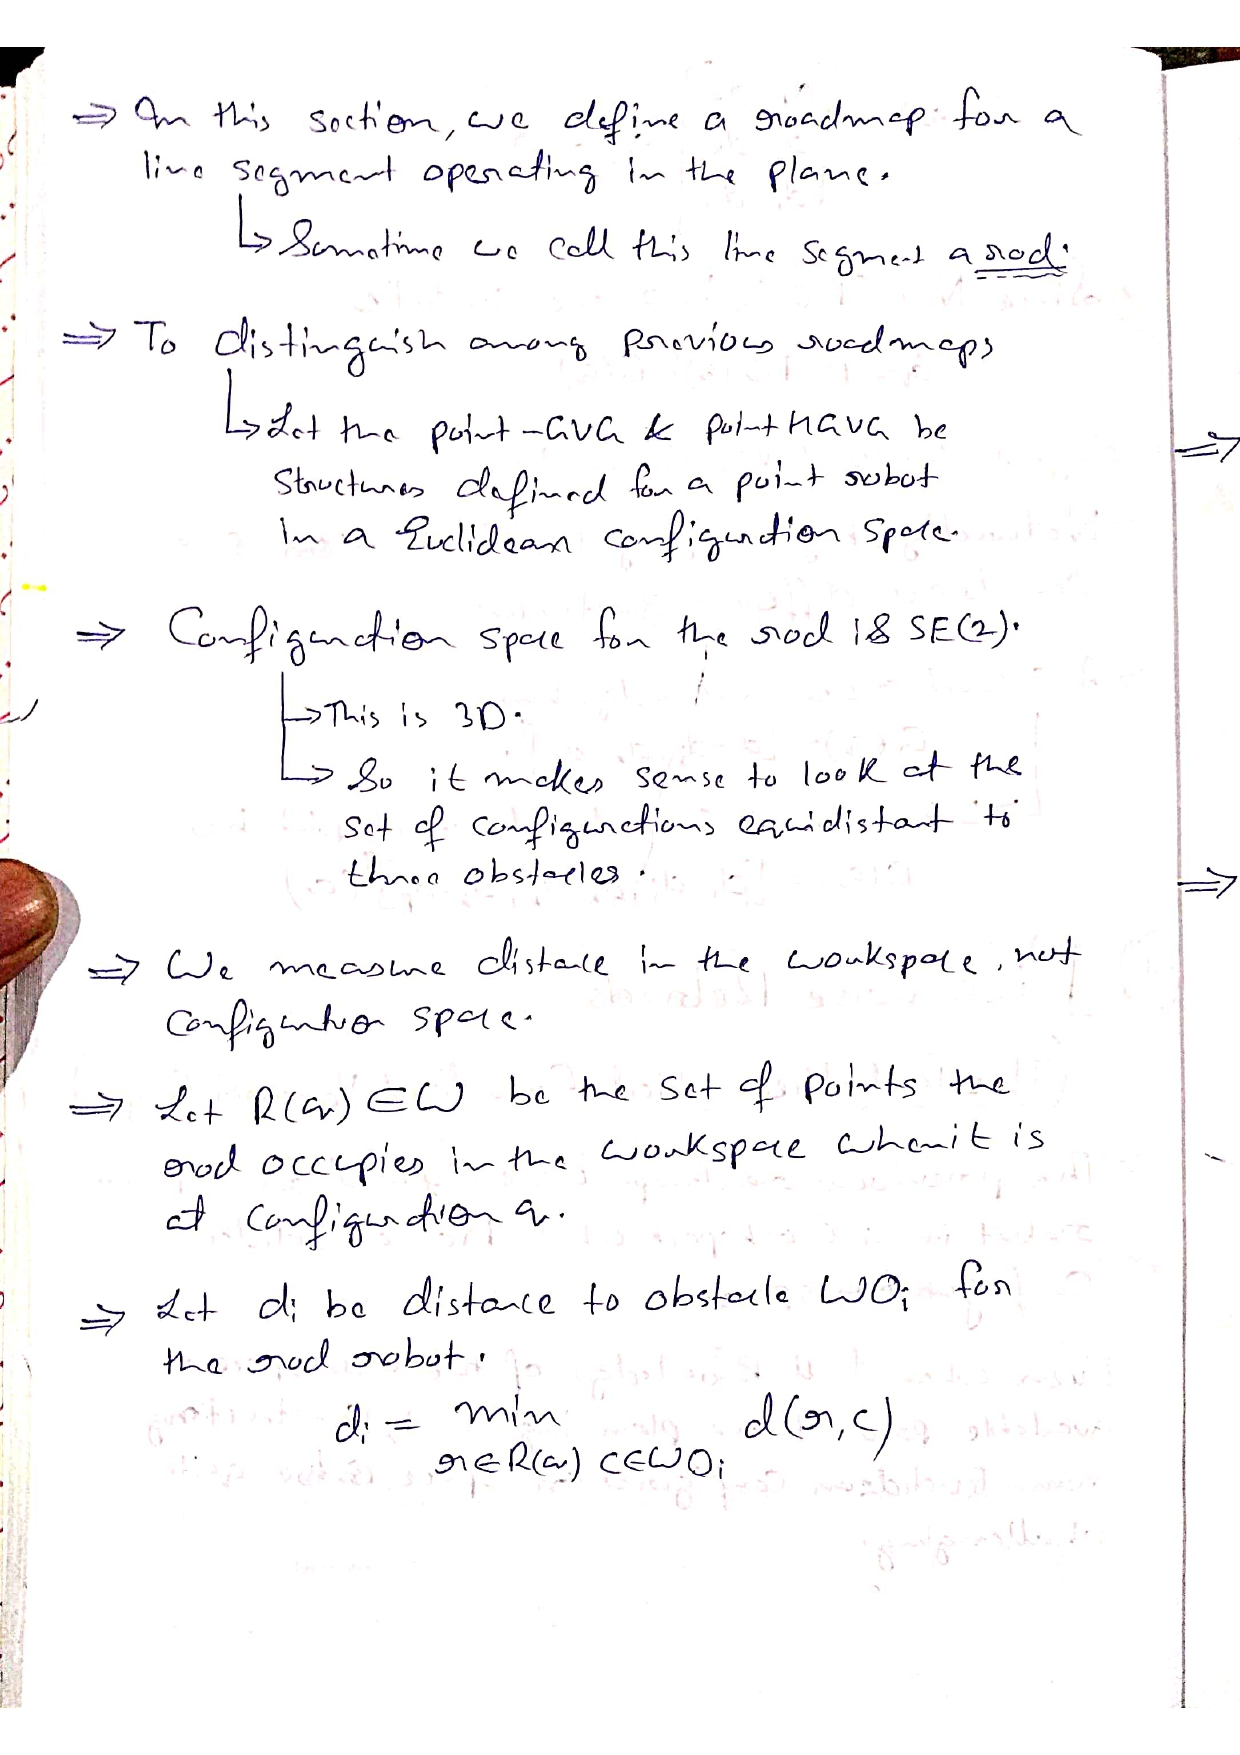 ⇒ In this section, we define a roadmap for a
line segment operating in the plane.
↳ Sometime we call this line segment a rod.
⇒ To distinguish among previous roadmaps
↳ Let the point-GVG & point HGVG be
structures defined for a point robot
in a Euclidean configuration space.
⇒ Configuration space for the rod is SE(2).
↳ This is 3D.
↳ So it makes sense to look at the
set of configurations equidistant to
three obstacles.
⇒ We measure distance in the workspace, not
configuration space.
⇒ Let R(q) ∈ W be the set of points the
rod occupies in the workspace when it is
at configuration q.
⇒ Let di be distance to obstacle WOi for
the rod robot.
di = min d(r,c)
r∈R(q) c∈WOi